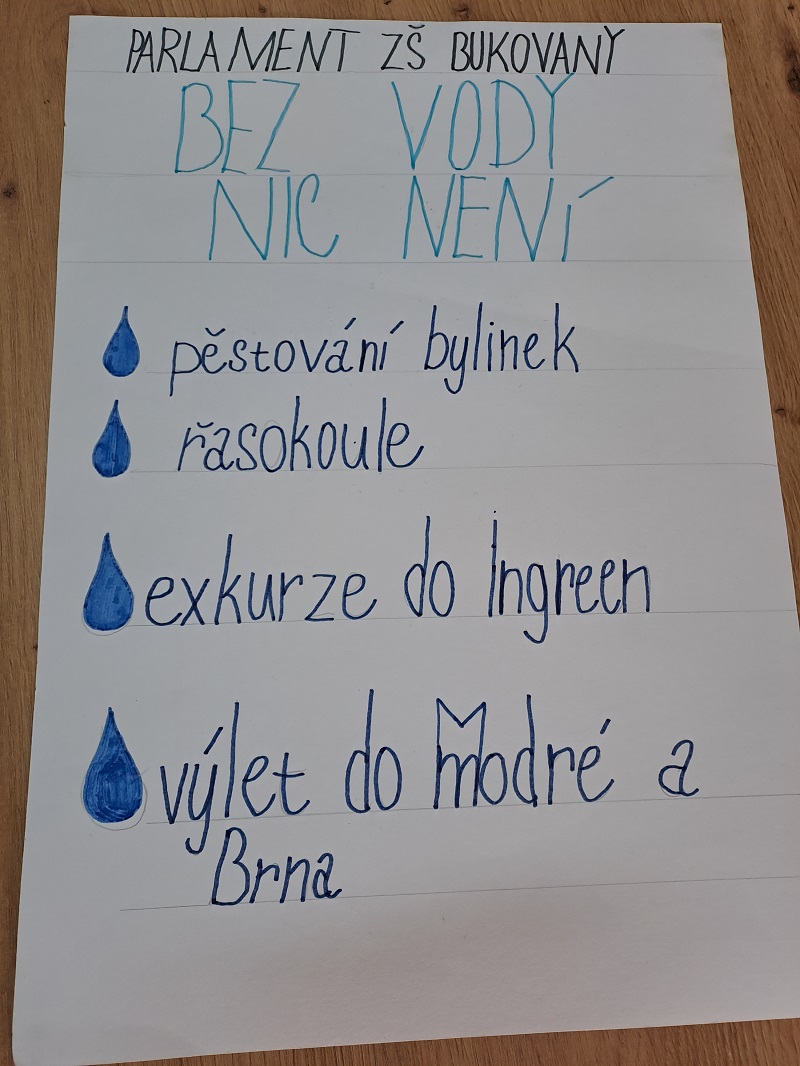 PARLAMENT ZŠ BUKOVANY
BEZ VODY
NIC NENÍ
pěstování bylinek
řasokoule
exkurze do Ingreen
výlet do Modré a
Brna